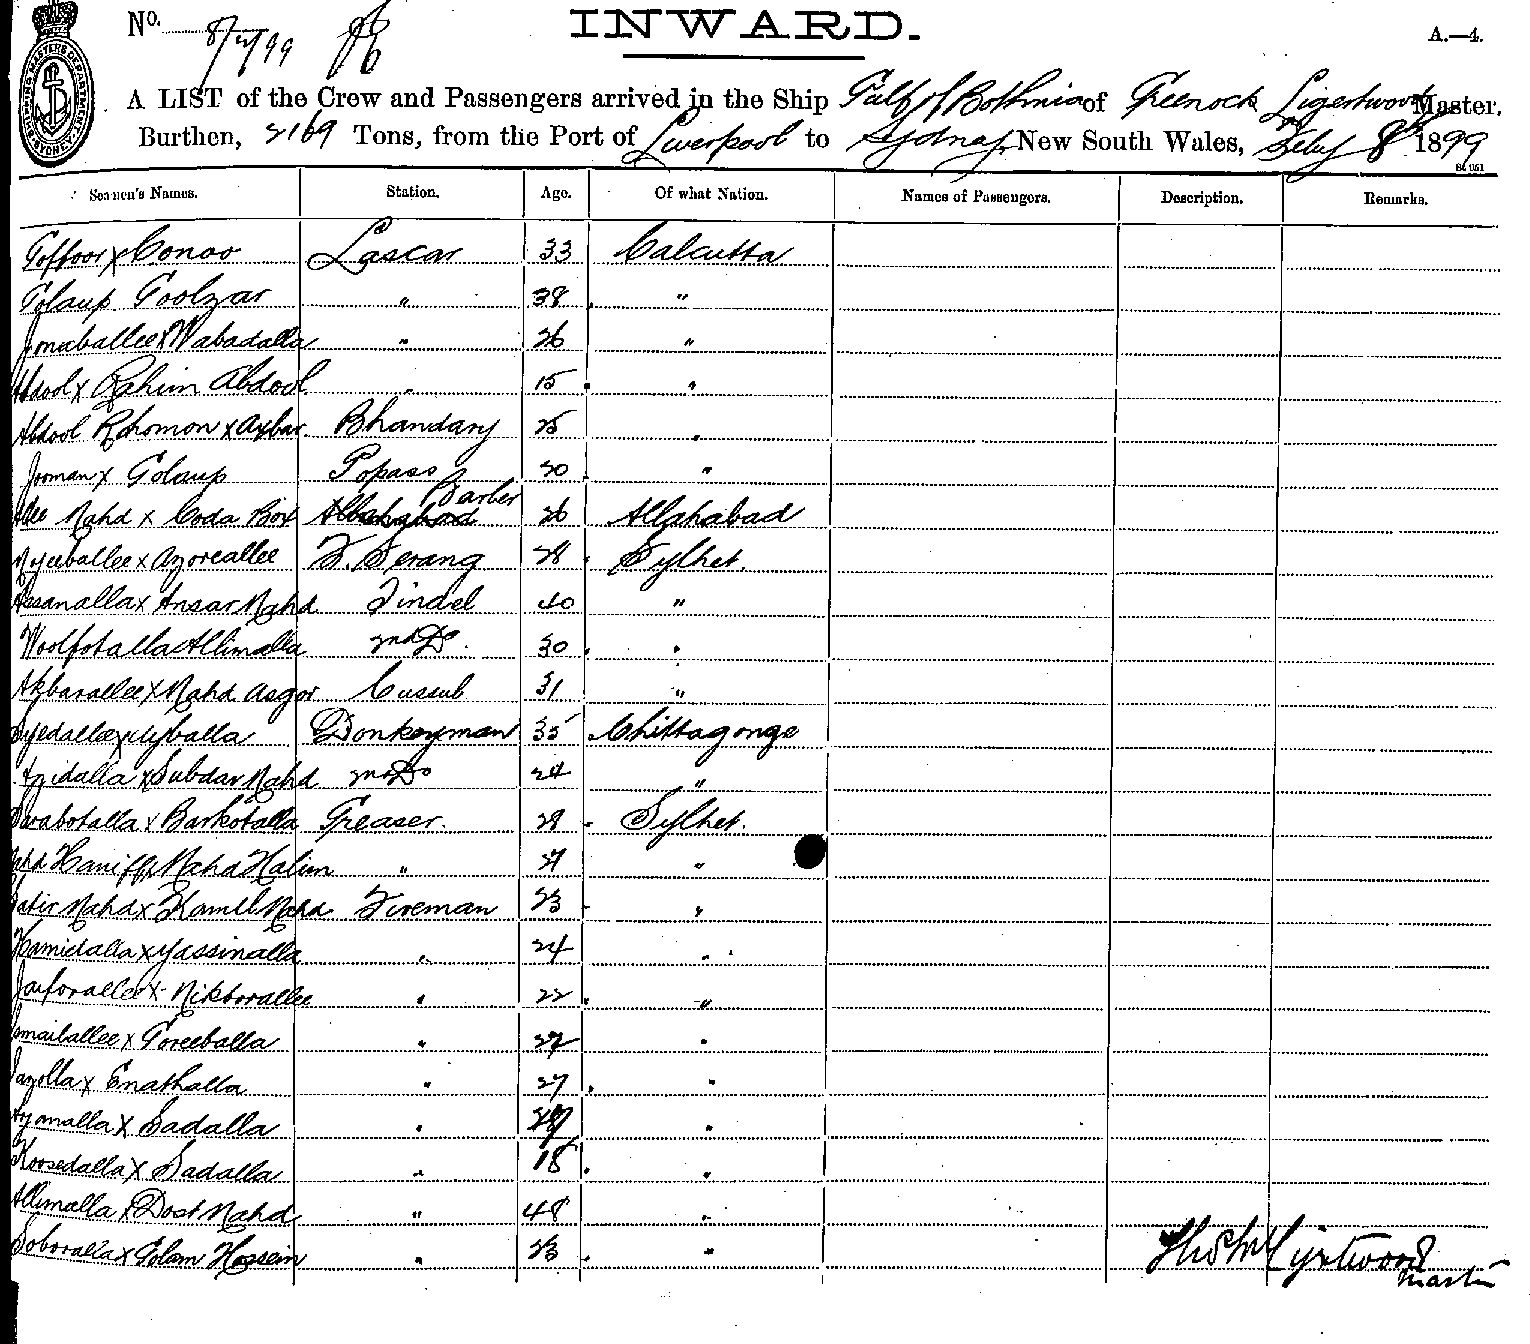 No. 8/7/99
INWARD.
A.—4.
A LIST of the Crew and Passengers arrived in the Ship Gulf of Bothnia of Greenock Ligertwood Master,
Burthen, 2169 Tons, from the Port of Liverpool to Sydney New South Wales, 8th 1899
Seamen's Names. Station. Age. Of what Nation. Names of Passengers. Description. Remarks.
Goffoor x Conoo Lascar 33 Calcutta
Golaup Goolzar " 38 "
Jonaballee x Wabadalla " 26 "
Abdool x Rahim Abdool " 15 "
Abdool Rohomon x Axbar Bhandary 25 "
Jooman x Golaup Topass 30 "
Mahd x Coda Box Barber 26 Allahabad
x Azoreallee F. Serang 28 Sylhet.
Assanalla x Ansar Mahd Tindel 40 "
Woolfotalla Allimalla 2nd Do. 30 "
Akbarallee x Mahd Asgor Cussub 31 "
Donkeyman 35 Chittagonge
Azidalla x Subdar Mahd 2nd Do 24 "
x Barkotalla Greaser. 28 Sylhet.
Mahd Haniff x Mahd Halim " 27 "
Mahd x Kamil Mahd Fireman 23 "
Hamidalla x Yassinalla " 24 "
Jaiforallee x " 22 "
Ismaiballee x Goreeballa " 22 "
x Enathalla " 27 "
Azomalla x Sadalla " "
Koosedalla x Sadalla " 18 "
Allimalla x Dost Mahd " 48 "
Soboralla x Golam Hossein " 23 "
Ligertwood
Master